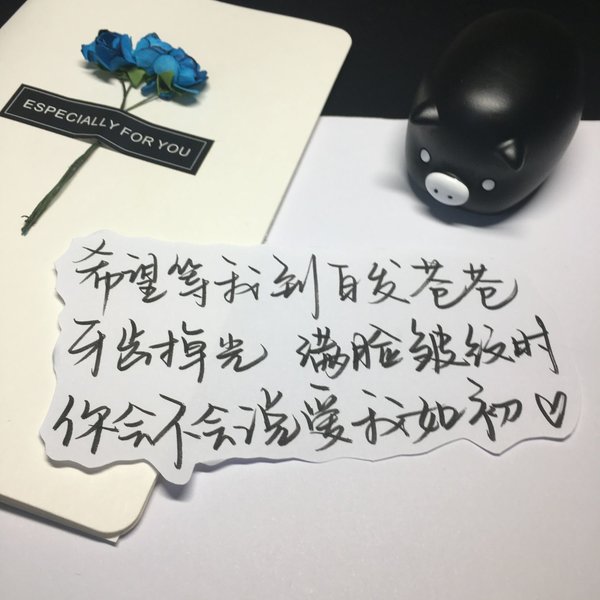 ESPECIALLY FOR YOU
希望等我到白发苍苍
牙齿掉光 满脸皱纹时
你会不会说爱我如初♡